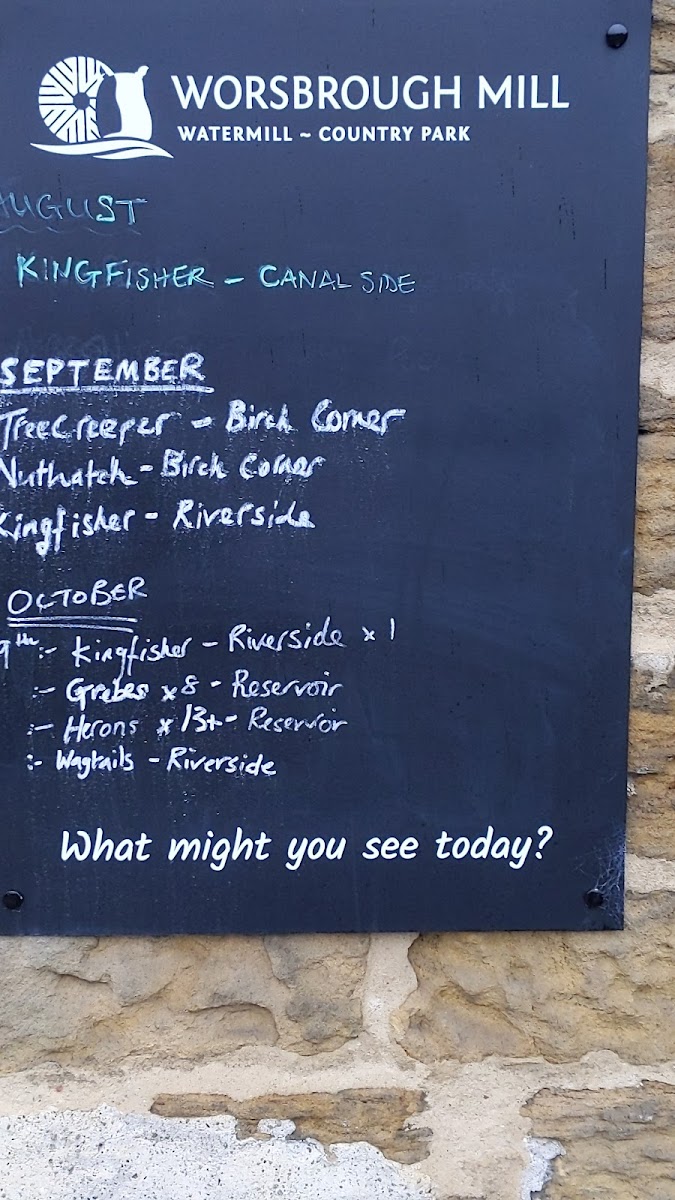 WORSBROUGH MILL
WATERMILL ~ COUNTRY PARK
AUGUST
KINGFISHER - CANAL SIDE
SEPTEMBER
Treecreeper - Birch Corner
Nuthatch - Birch Corner
Kingfisher - Riverside
OCTOBER
9th :- Kingfisher - Riverside x 1
:- Grebes x 8 - Reservoir
:- Herons x 13+ - Reservoir
:- Wagtails - Riverside
What might you see today?